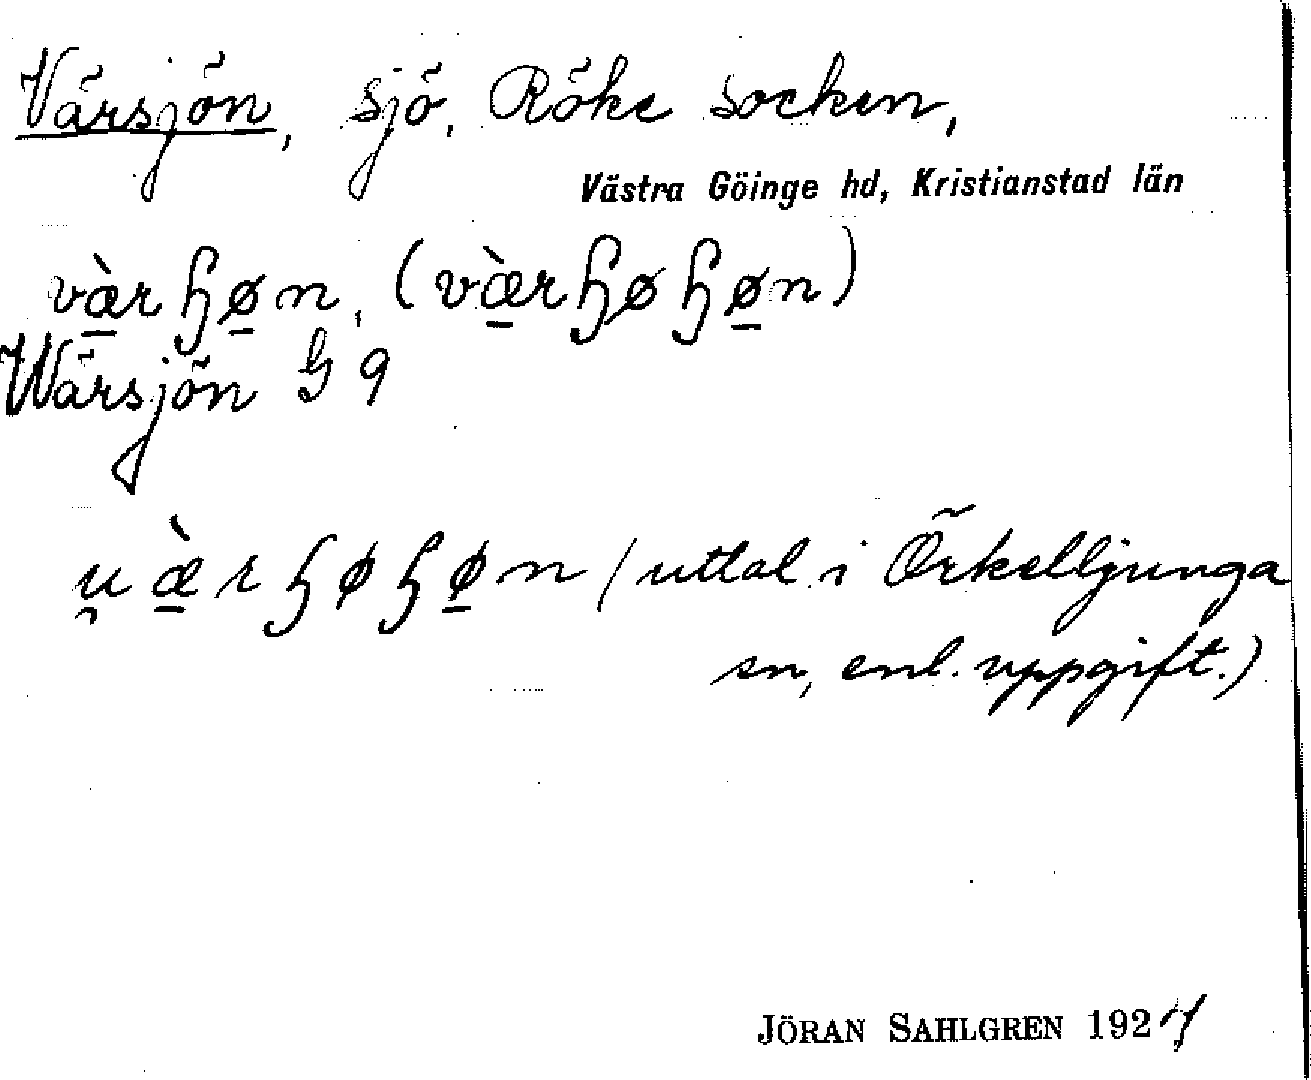 Värsjön, sjö, Röke socken,
Västra Göinge hd, Kristianstad län
væ̀rɧøn, (væ̀rɧøɧøn)
Wärsjön G 9
u̯æ̀rɧøɧøn (uttal i Örkelljunga
sn, enl. uppgift.)
JÖRAN SAHLGREN 1924